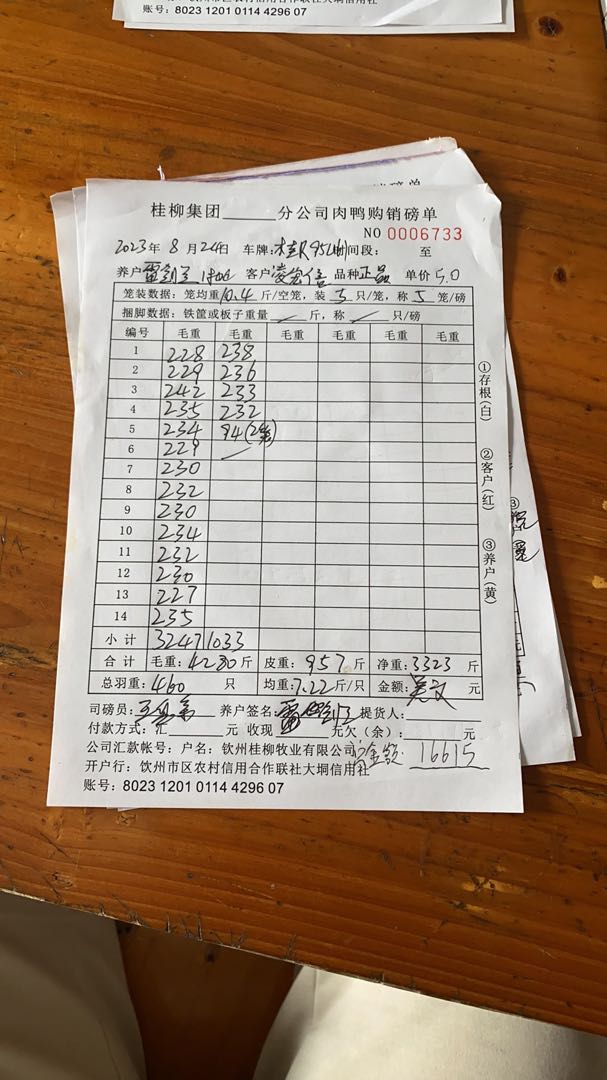 账号: 8023 1201 0114 4296 07
桂柳集团 分公司肉鸭购销磅单
NO 0006733
2023年 8月24日 车牌: 时间段: 至
养户 客户 品种正品 单价5.0
笼装数据: 笼均重10.4斤/空笼, 装 5 只/笼, 称 5 笼/磅
捆脚数据: 铁筐或板子重量 / 斤, 称 / 只/磅
编号 毛重 毛重 毛重 毛重 毛重 毛重
1 228 238
2 229 236
3 242 233
4 235 232
5 234 94(2笼)
6 229 /
7 230
8 232
9 230
10 234
11 232
12 230
13 227
14 235
小计 3247 1033
合计 毛重: 4280斤 皮重: 957斤 净重: 3323斤
总羽重: 460 只 均重: 7.22斤/只 金额: 元
司磅员: 养户签名: 提货人:
付款方式: 汇 元 收现 元欠(余): 元
公司汇款帐号: 户名: 钦州桂柳牧业有限公司 金额: 16615
开户行: 钦州市区农村信用合作联社大垌信用社
账号: 8023 1201 0114 4296 07
①存根(白)
②客户(红)
③养户(黄)